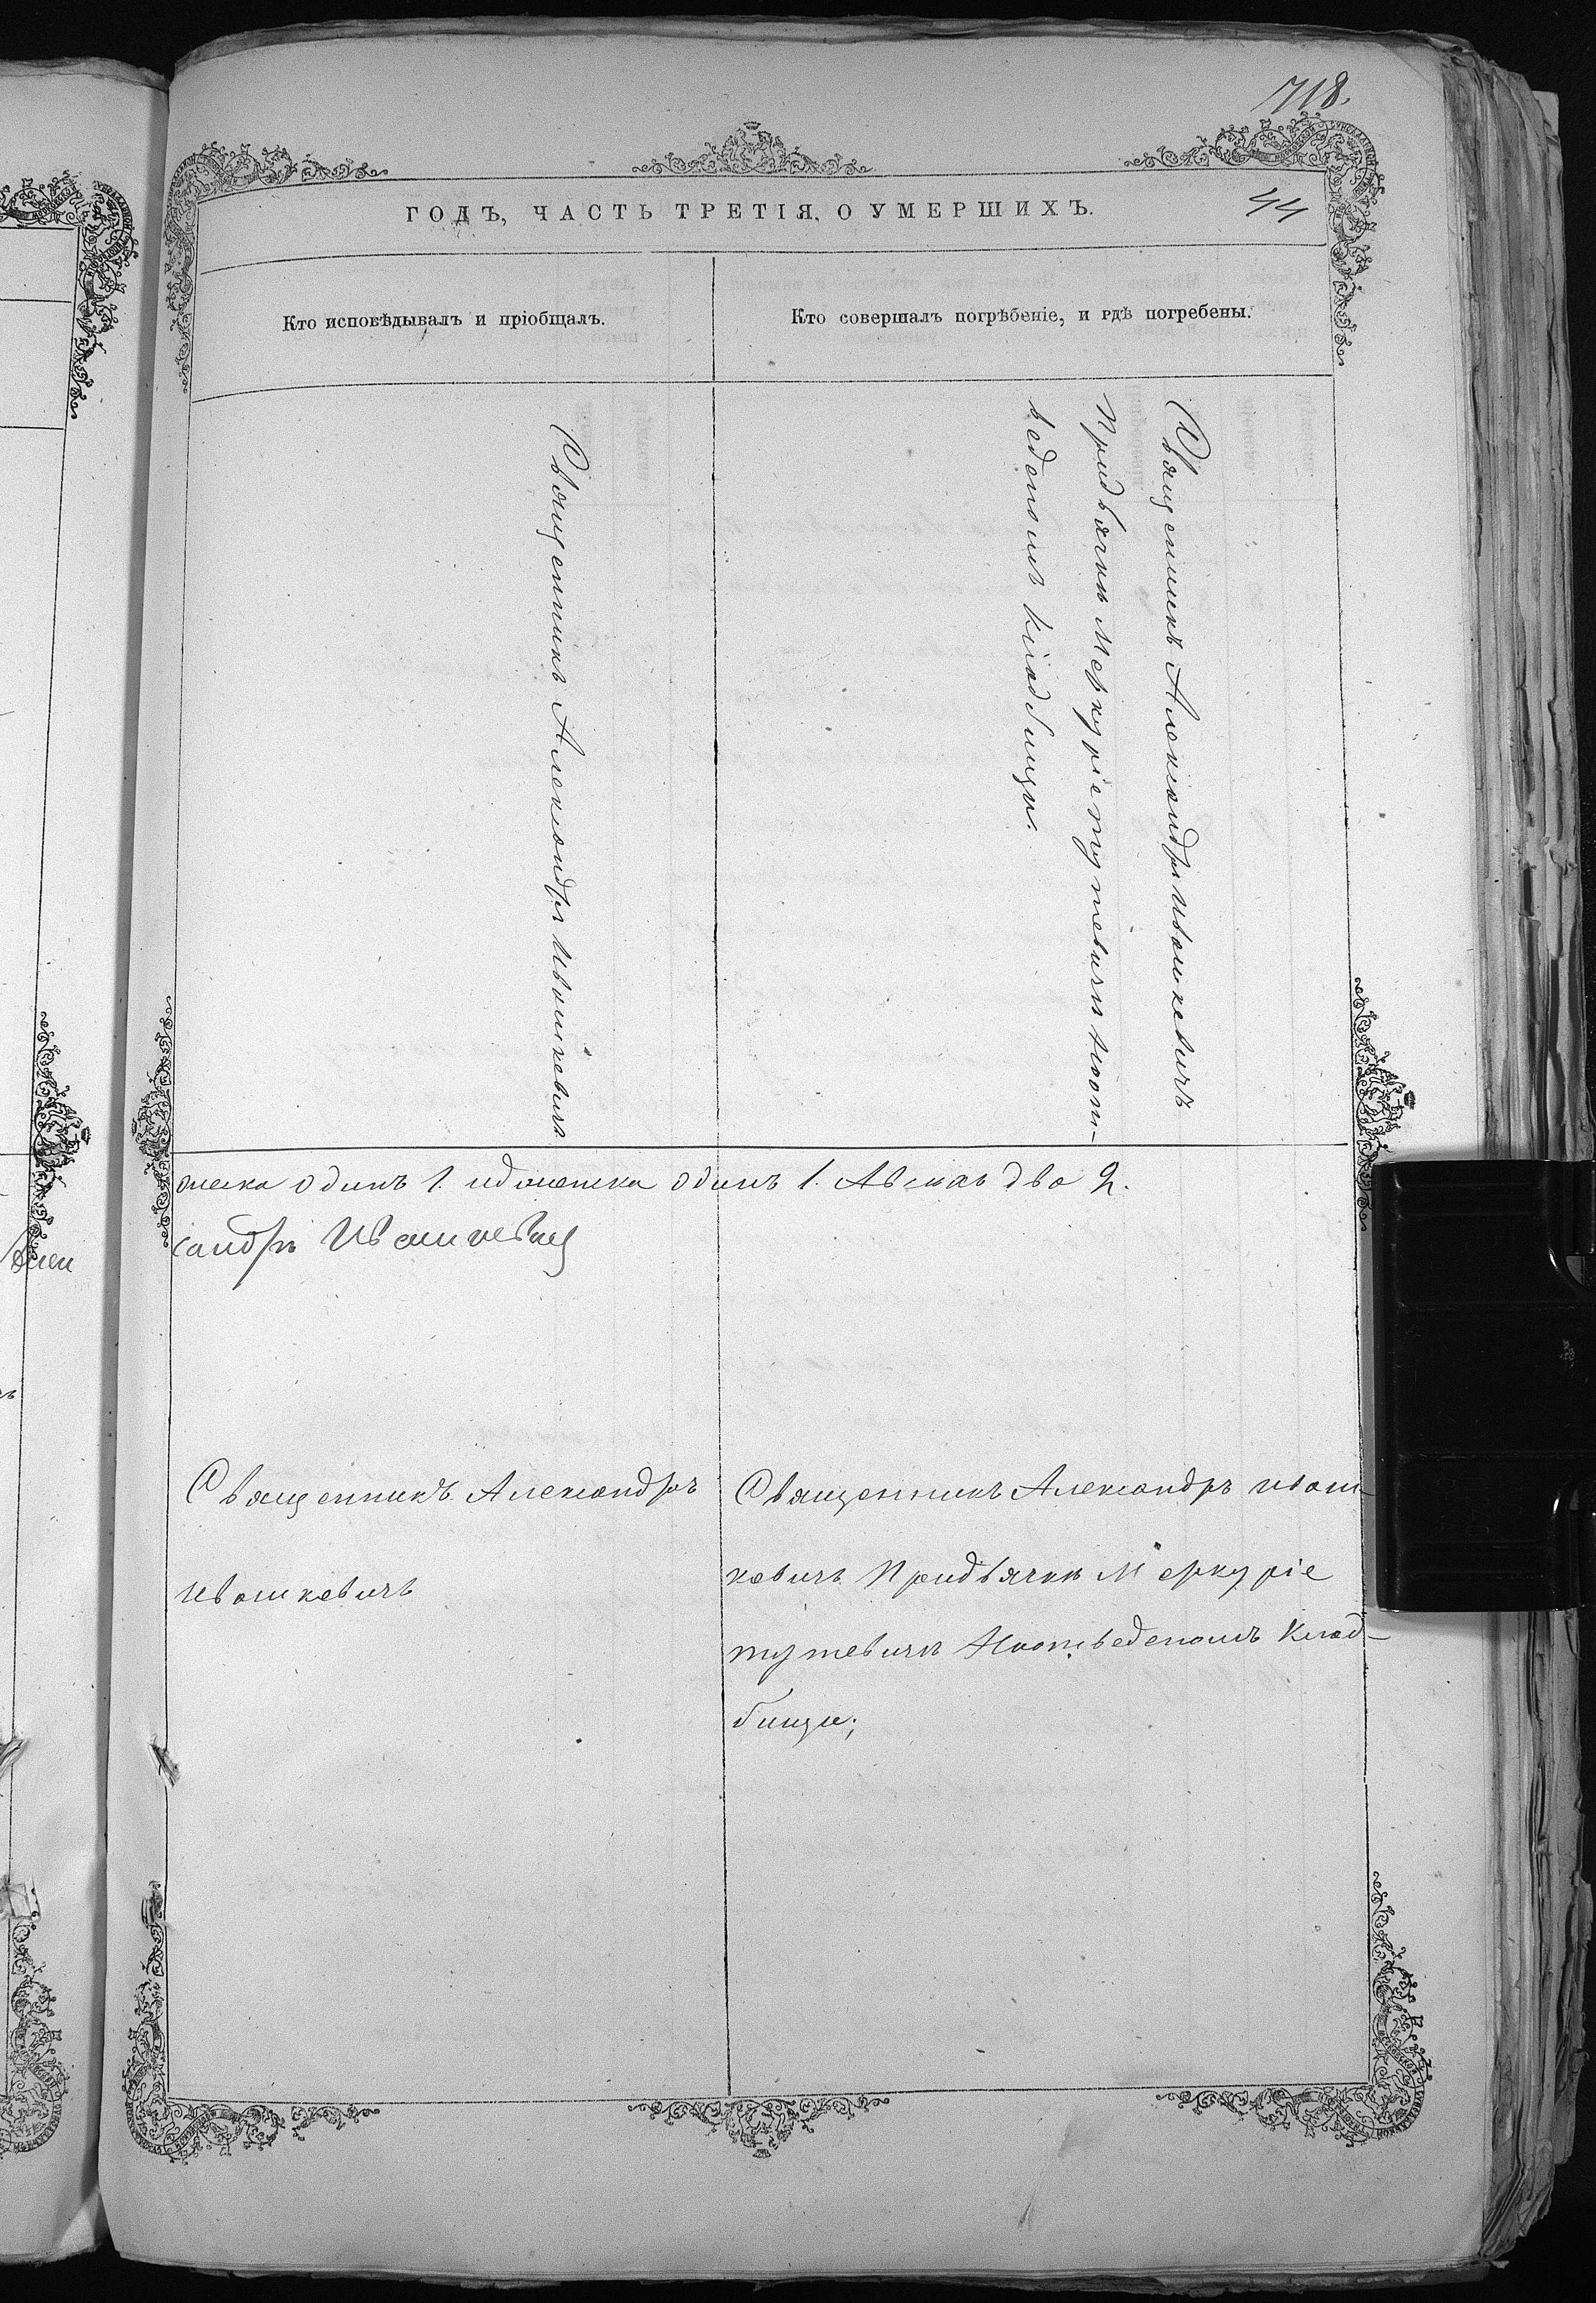 718.
ГОДЪ, ЧАСТЬ ТРЕТІЯ, О УМЕРШИХЪ.
44
Кто исповѣдывалъ и пріобщалъ.
Кто совершалъ погрѣбеніе, и гдѣ погребены.
Священникъ Александръ Ивашкевичъ
Священникъ Александръ Ивашкевичъ
Придьячкѣ Меркуріе тутевичи наот-
веденомъ кладбищи.
жска одинъ 1. иженска одинъ 1. Авсихъ два 2.
сандръ Ивашкевич
Священникъ Александръ
Ивашкевичъ
Священникъ Александръ иваш-
кевичъ Придьячкѣ Меркуріе
тутевичѣ Наотведеномъ Клад-
бищи;